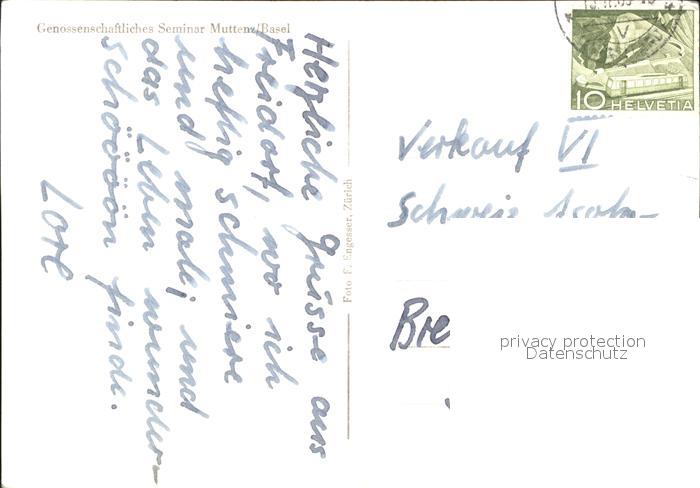 Genossenschaftliches Seminar Muttenz/Basel
Herzliche Grüsse aus
Freidorf, wo ich
heftig schmiere
und male; und
das Leben wunder-
schööön finde.
Lore
Foto F. Engesser, Zürich
10 HELVETIA
Verkauf VI
Bie
privacy protection
Datenschutz